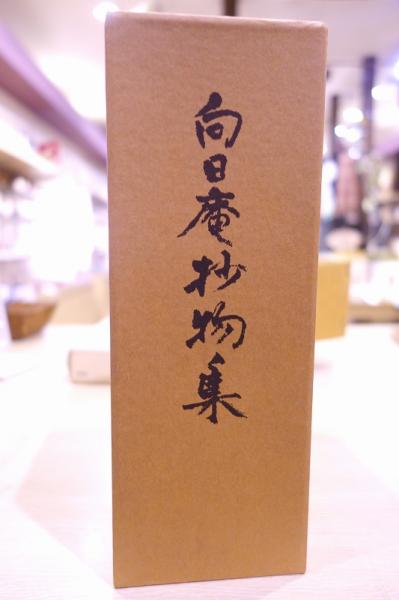 向日庵抄物集